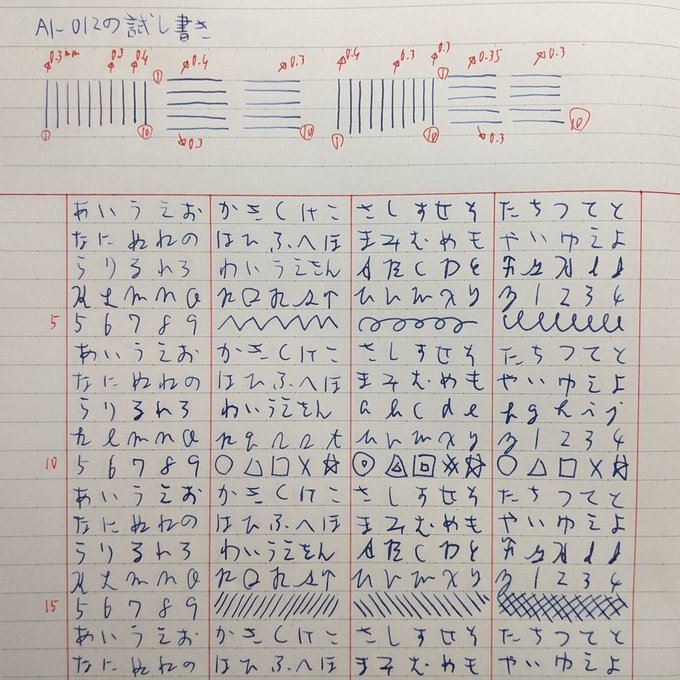 AI-012の試し書き
ø0.3mm ø0.3 ø0.4 ① ø0.4 ø0.3 ø0.4 ø0.3 ø0.3 ① ø0.35 ø0.3
① ⑩ ø0.3 ⑩ ① ⑩ ø0.3 ⑳
あいうえお かきくけこ さしすせそ たちつてと
なにぬねの はひふへほ まみむめも やいゆえよ
らりるれろ わいうえをん A B C D E F G H I J
K L M N O P Q R S T U V W X Y Z 1 2 3 4
5 5 6 7 8 9
あいうえお かきくけこ さしすせそ たちつてと
なにぬねの はひふへほ まみむめも やいゆえよ
らりるれろ わいうえをん a b c d e f g h i j
k l m n o p q r s t u v w x y z 1 2 3 4
10 5 6 7 8 9 ○△□×☆ ○△□×☆
あいうえお かきくけこ さしすせそ たちつてと
なにぬねの はひふへほ まみむめも やいゆえよ
らりるれろ わいうえをん A B C D E F G H I J
K L M N O P Q R S T U V W X Y Z 1 2 3 4
15 5 6 7 8 9
あいうえお かきくけこ さしすせそ たちつてと
なにぬねの はひふへほ まみむめも やいゆえよ